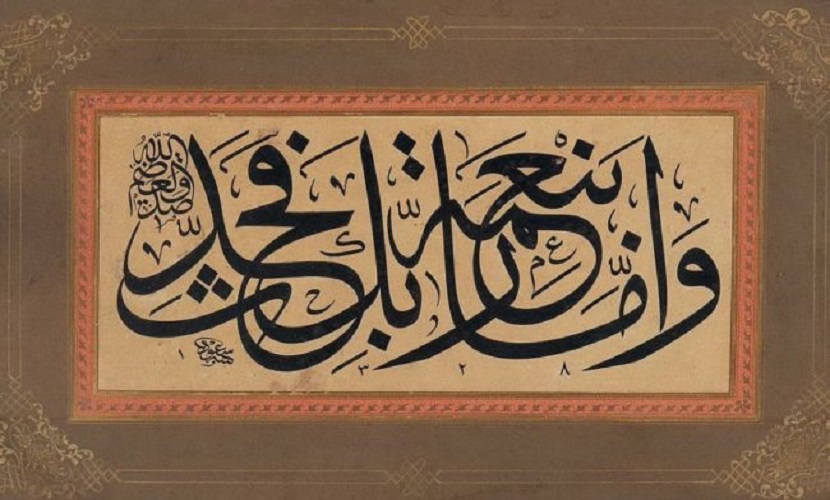 وَاَمَّا بِنِعْمَةِ رَبِّكَ فَحَدِّثْ
صدق الله العظيم
١٣٢٨